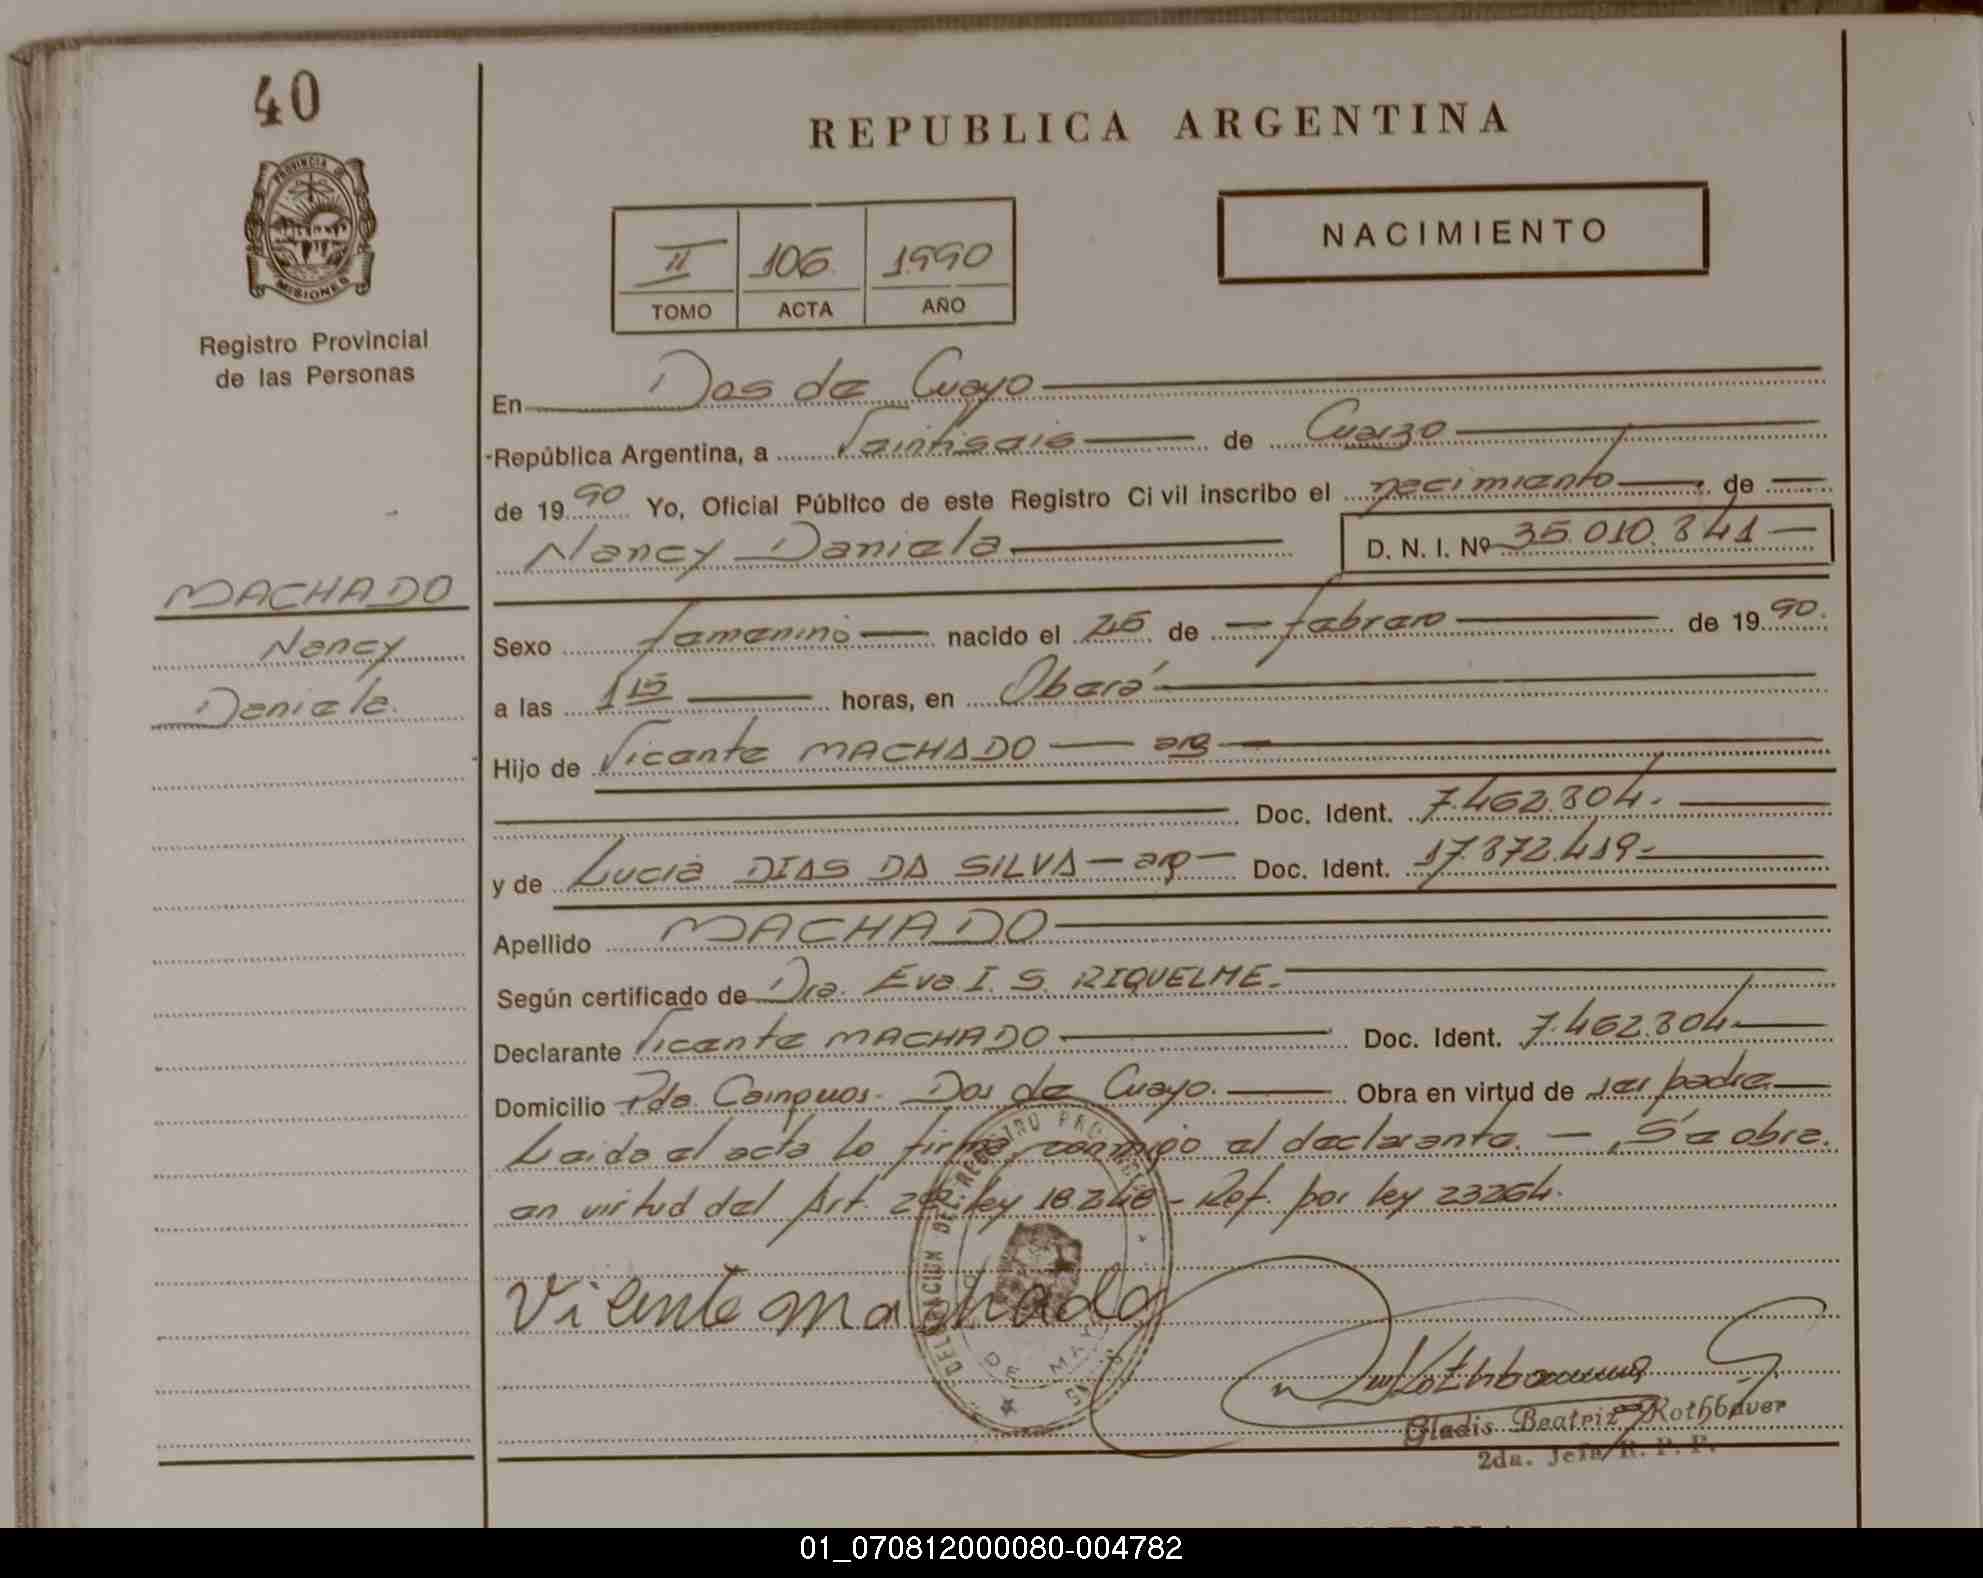 40
PROVINCIA DE
MISIONES
Registro Provincial
de las Personas
MACHADO
Nancy
Daniela.
REPUBLICA ARGENTINA
NACIMIENTO
II 106 1990
TOMO ACTA AÑO
En Dos de Mayo
República Argentina, a veintiseis de Marzo
de 1990 Yo, Oficial Público de este Registro Civil inscribo el nacimiento de
Nancy Daniela D. N. I. Nº 35.010.841
Sexo femenino nacido el 26 de febrero de 1990.
a las 1 15 horas, en Oberá
Hijo de Vicente MACHADO arg
Doc. Ident. 7.462.804.
y de Lucia DIAS DA SILVA arg Doc. Ident. 17.872.419
Apellido MACHADO
Según certificado de Dra. Eva I. S. RIQUELME.
Declarante Vicente MACHADO Doc. Ident. 7.462.804
Domicilio Pdo. Dos de Mayo. Obra en virtud de ser padre
Leida el acta la firma conmigo el declarante. — Se obra.
en virtud del Art. 2º ley 18.248 - Ref. por ley 23264.
Vicente machado
DELEGACION DEL REGISTRO
DE MAYO
Gladis Beatriz Rothbauer
2da. Jefa R. P. P.
01_070812000080-004782